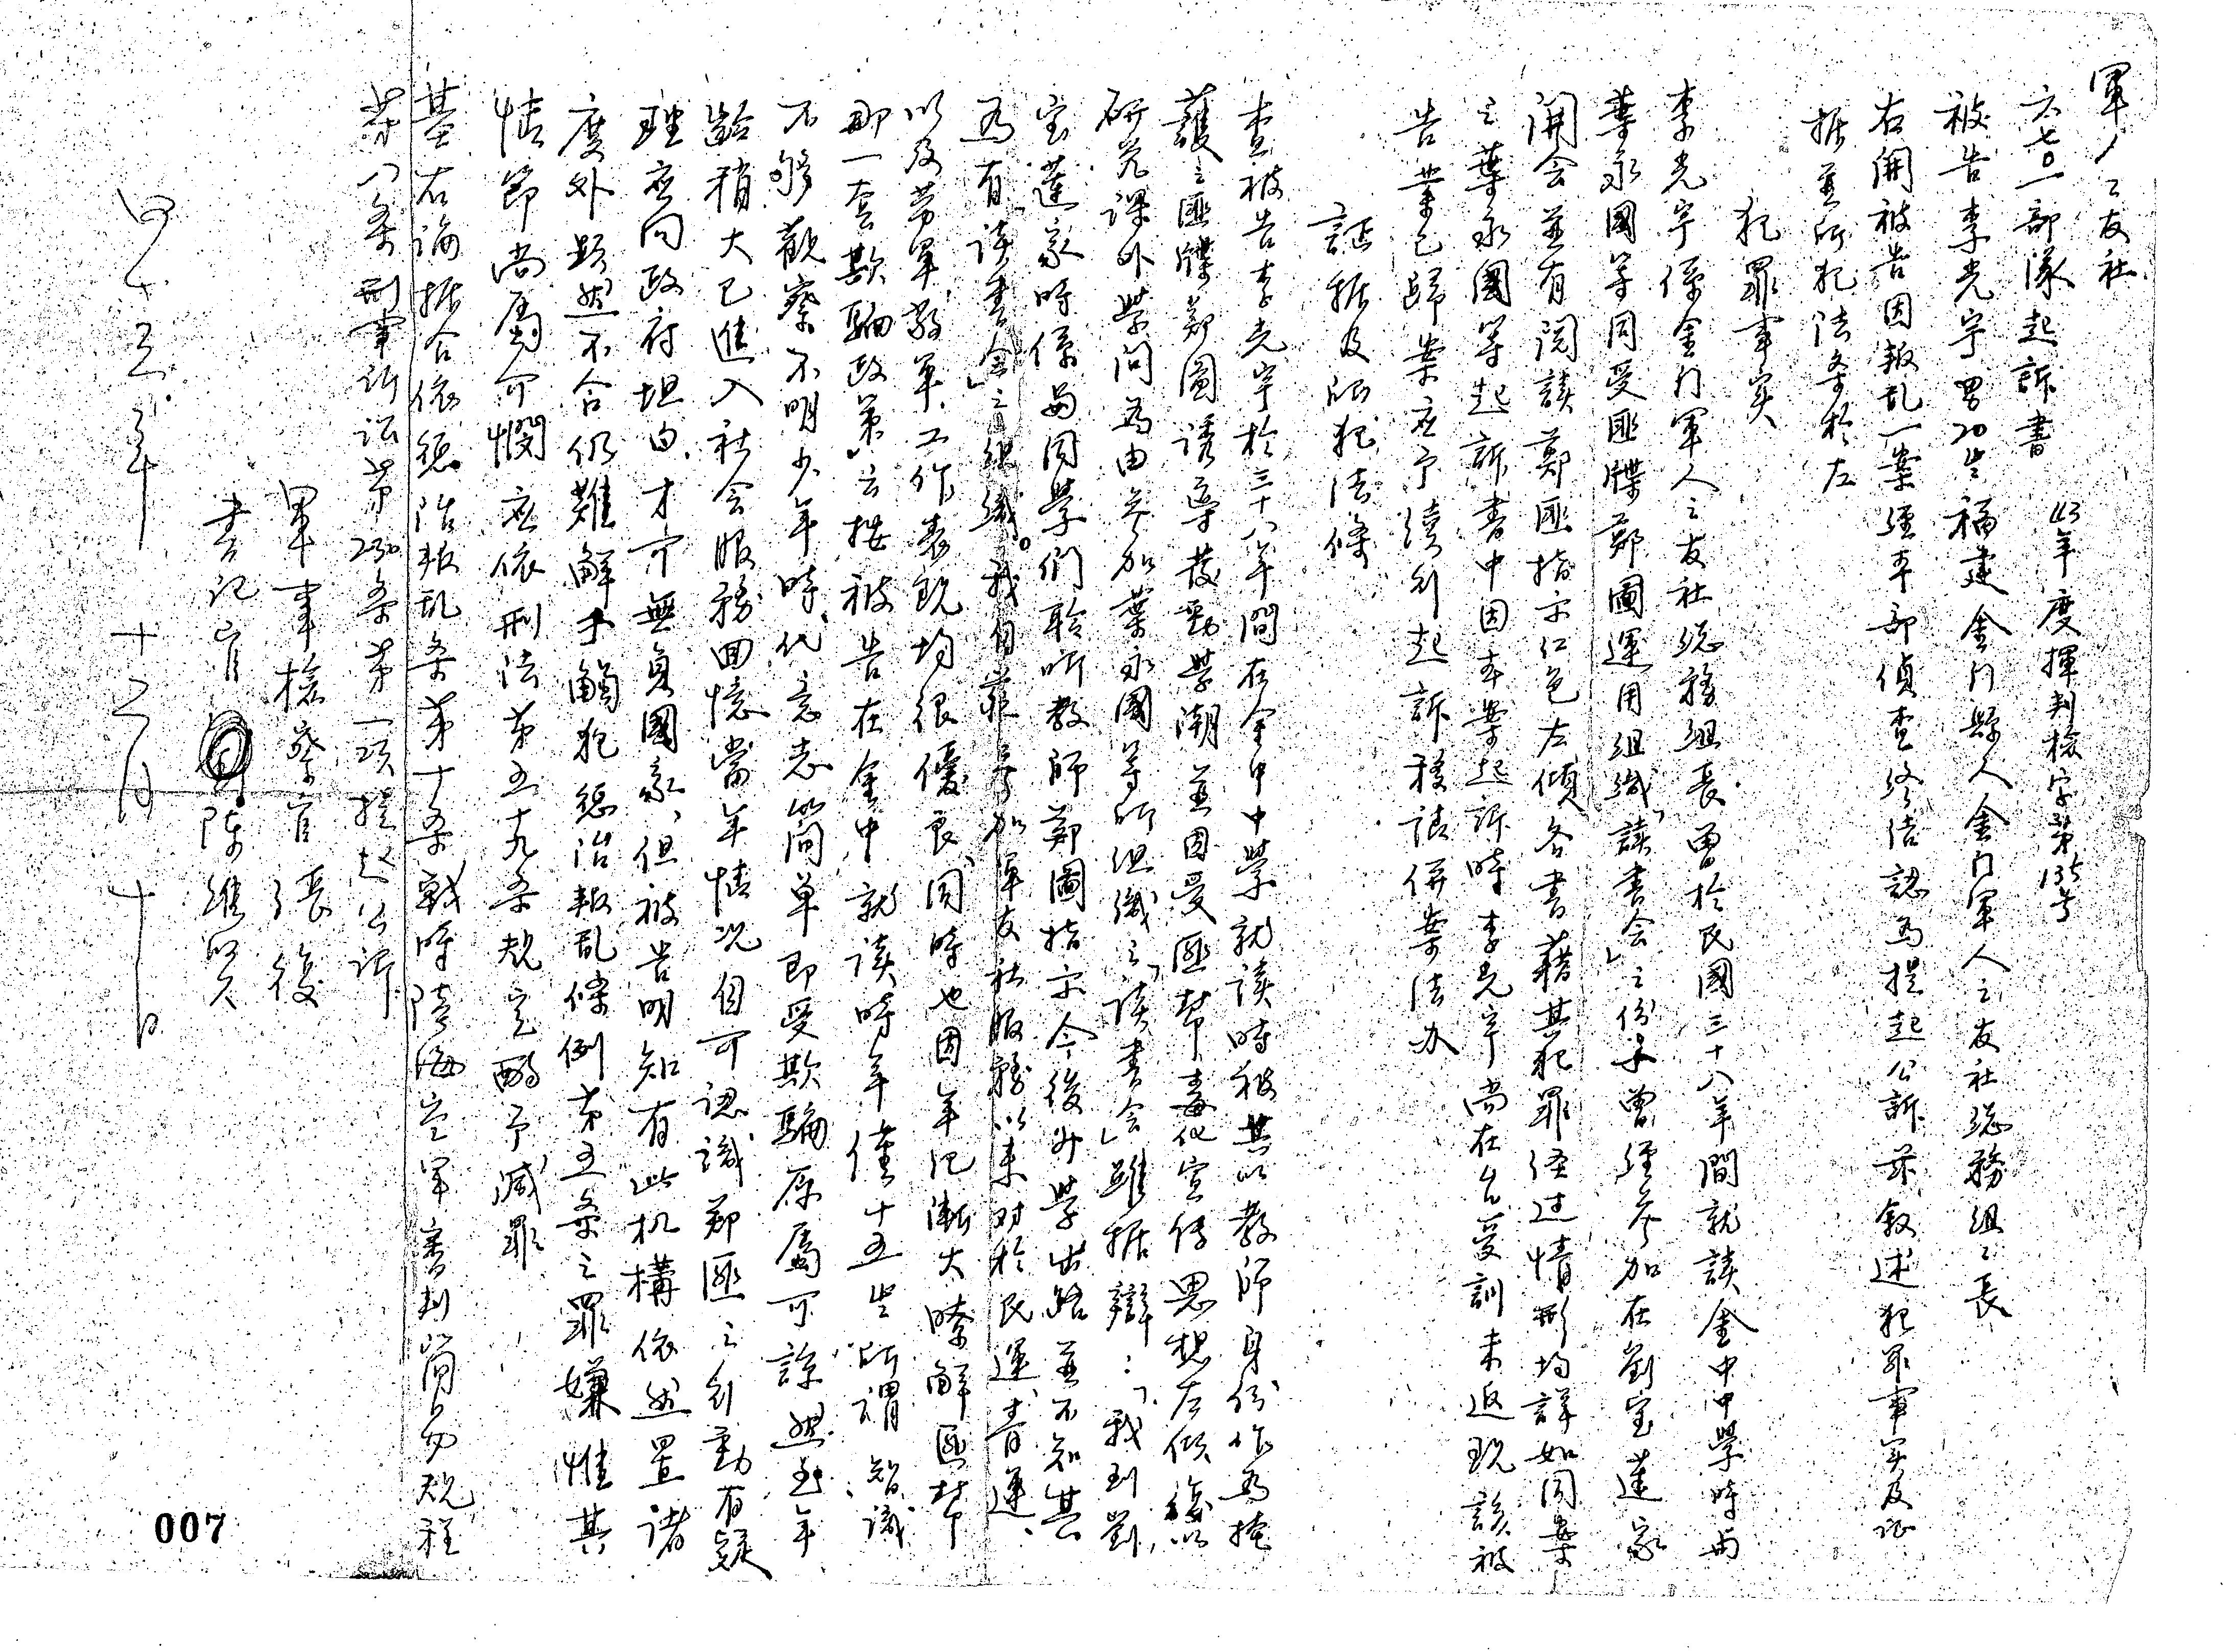 軍人之友社
六七〇一部隊起訴書　43年度揮判檢字第135号
被告李光宇男20岁福建金门縣人金门軍人之友社総務組組長
右開被告因叛乱一案経本部偵查終結認為提起公訴茲叙述犯罪事实及证
據並所犯法条於左
犯罪事实
李光宇係金门軍人之友社総務組長曾於民國三十八年間就讀金中中學時与
葉永國等同受匪諜鄭圖運用組織「讀書会」之份子曾経参加在劉宝蓮家
開会並有閱讀鄭匪指示红色左傾各書藉其犯罪経过情形均詳如同案
之葉永國等起訴書中因本案起訴時李光宇尚在台受訓未返現該被
告業已歸案应予續行起訴移請併案法办
証據及所犯法條
查被告李光宇於三十八年間在金中中學就讀時被其以教師身份作為掩
護之匪諜鄭圖誘導發動學潮並因受匪幫毒化宣傳思想左傾復以
研究課外學問為由参加葉永國等所组織之「读書会」雖據辯：「我到劉
宝蓮家時係与同學們聆听教師鄭圖指示今後升學出路並不知其
為有「读書会」之组織。我自從参加軍友社服務以来对於民運、青運、
以及劳軍、敬軍、工作表現均很優良、同時也因年纪漸大瞭解匪幫
那一套欺騙政策」云按被告在金中就读時年僅十五岁所謂智識
不夠觀察不明少年時代意志簡单即受欺騙原屬可諒然至年
齡稍大已進入社会服務回憶當年情况自可認識鄭匪之行動有疑
理应向政府坦白才可無負國家、但被告明知有此机構依然置诸
度外顯然不合仍難解于觸犯惩治叛乱條例第五条之罪嫌惟其
情節尚屬可憫应依刑法第五十九条规定酌予減罪
基右論據合依惩治叛乱条第十条戰時陸海空軍審判简易规程
第八条刑事訴讼法第230条第一项提起公訴
軍事檢察官張俊
書记官陳維賢
四十三年十二月十一日
007